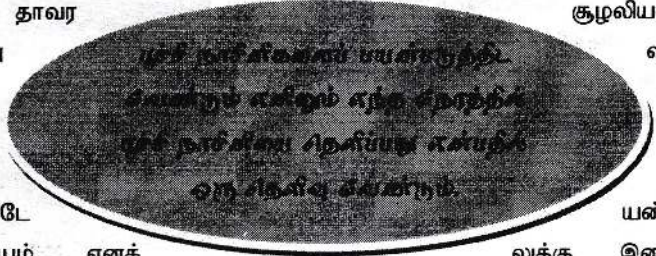 தாவர சூழலிய
பூச்சி நாசினிகளைப் பயன்படுத்திட
வேண்டும் எனினும் எந்த நேரத்தில்
பூச்சி நாசினியை தெளிப்பது என்பதில்
ஒரு தெளிவு வேண்டும்.
டே யன்
யம் எனக் லுக்கு